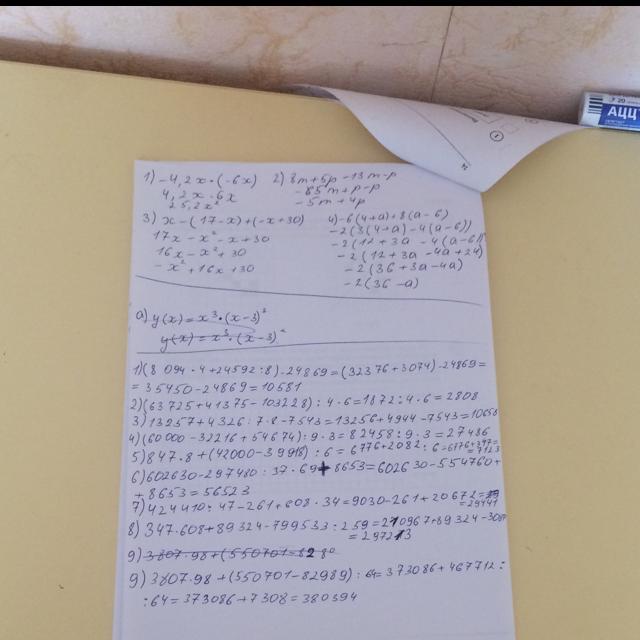 АЦЦ
1) -4,2x·(-6x)
4,2x·6x
25,2x²
2) 8m+5p-13m-p
-85m+p-p
-5m+4p
3) x-(17-x)+(-x+30)
17x-x²-x+30
16x-x²+30
-x²+16x+30
4) -6(4+a)+8(a-6)
-2(3(4+a)-4(a-6))
-2(12+3a-4(a-6))
-2(12+3a-4a+24)
-2(36+3a-4a)
-2(36-a)
a) y(x)=x³·(x-3)²
y(x)=x³·(x-3)²
1)(8 094·4+24592:8)-24869=(32376+3074)-24869=
=35450-24869=10581
2)(63725+41375-103228):4·6=1872:4·6=2808
3)13257+4326:7·8-7543=13256+4944-7543=10658
4)(60000-32216+54674):9·3=82458:9·3=27486
5)847·8+(42000-39918):6=6776+2082:6=6776+347=
=7123
6)602630-297480:37·69+8653=602630-554760+
+8653=56523
7)424410:47-261+608·34=9030-261+20672=
=29441
8)347·608+89324-799533:259=210967+89324-3087
=297213
9)3807·98+(550701-828
9)3807·98+(550701-82989):64=373086+467712:
:64=373086+7308=380394